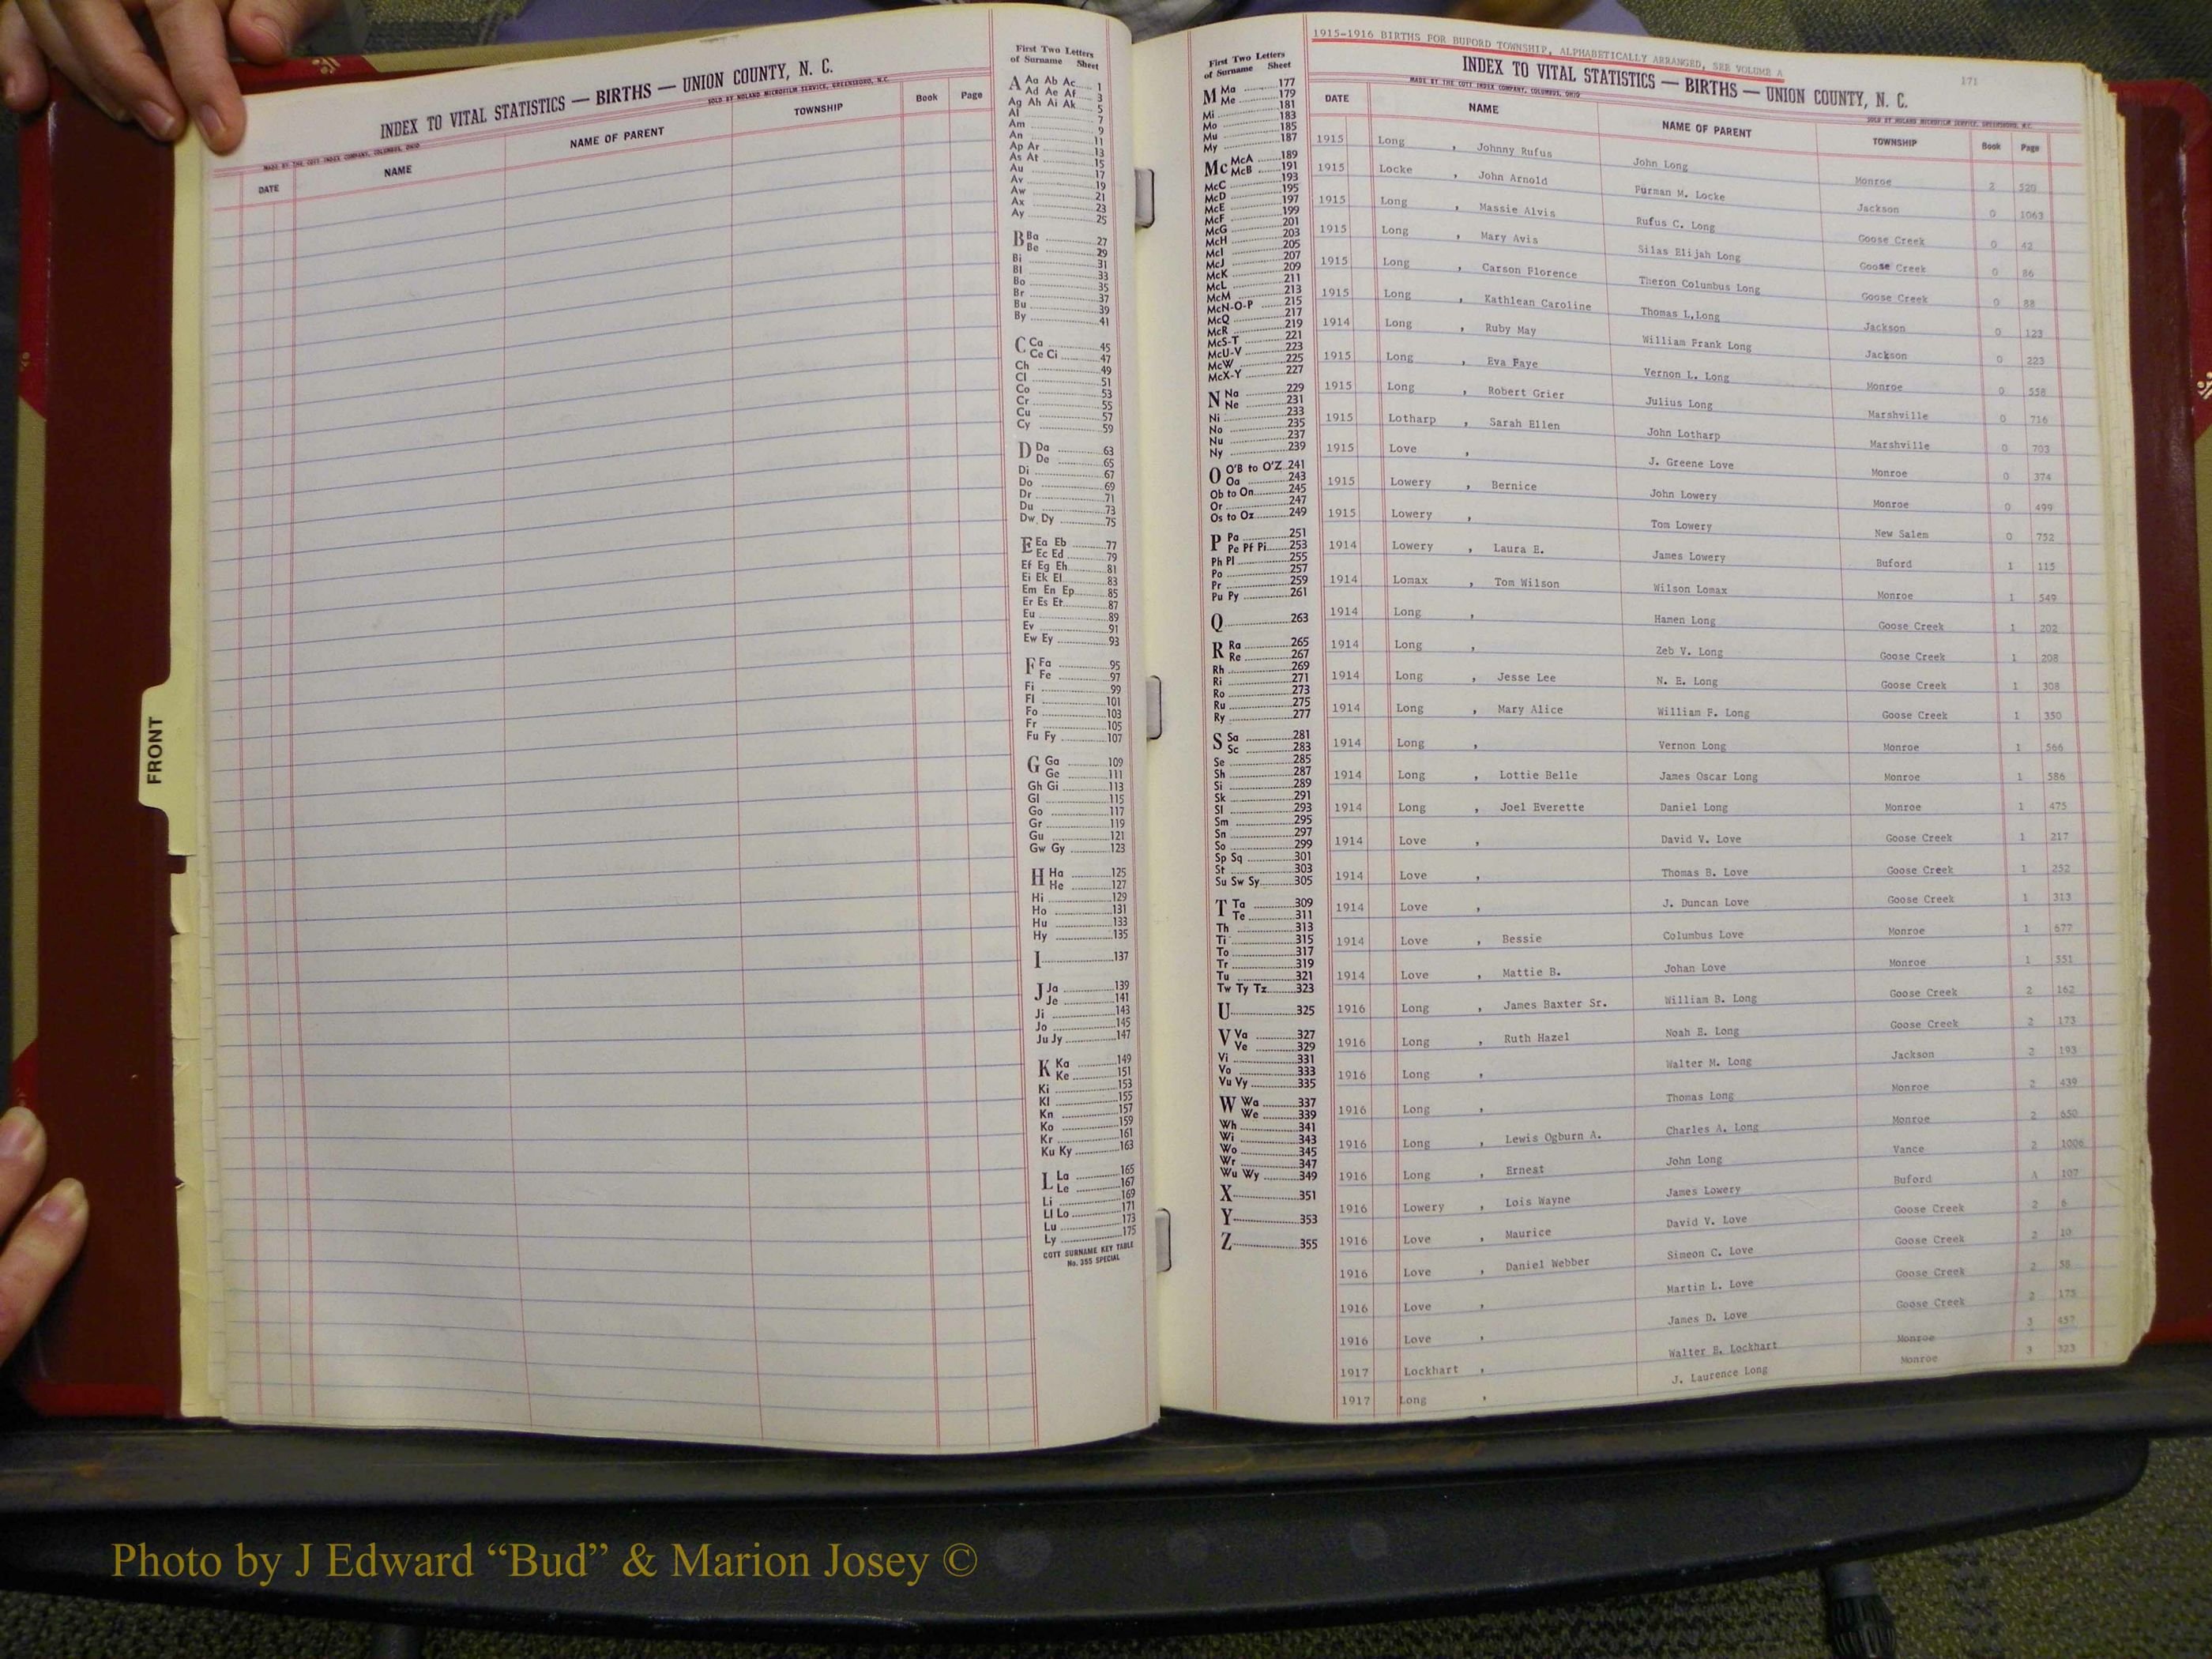 INDEX TO VITAL STATISTICS — BIRTHS — UNION COUNTY, N. C.
MADE BY THE COTT INDEX COMPANY, COLUMBUS, OHIO
SOLD BY NOLAND MICROFILM SERVICE, GREENSBORO, N.C.
DATE NAME NAME OF PARENT TOWNSHIP Book Page
FRONT
First Two Letters
of Surname Sheet
A Aa Ab Ac 1
Ad Ae Af 3
Ag Ah Ai Ak 5
Al 7
Am 9
An 11
Ap Ar 13
As At 15
Au 17
Av 19
Aw 21
Ax 23
Ay 25
B Ba 27
Be 29
Bi 31
Bl 33
Bo 35
Br 37
Bu 39
By 41
C Ca 45
Ce Ci 47
Ch 49
Cl 51
Co 53
Cr 55
Cu 57
Cy 59
D Da 63
De 65
Di 67
Do 69
Dr 71
Du 73
Dw Dy 75
E Ea Eb 77
Ec Ed 79
Ef Eg Eh 81
Ei Ek El 83
Em En Ep 85
Er Es Et 87
Eu 89
Ev 91
Ew Ey 93
F Fa 95
Fe 97
Fi 99
Fl 101
Fo 103
Fr 105
Fu Fy 107
G Ga 109
Ge 111
Gh Gi 113
Gl 115
Go 117
Gr 119
Gu 121
Gw Gy 123
H Ha 125
He 127
Hi 129
Ho 131
Hu 133
Hy 135
I 137
J Ja 139
Je 141
Ji 143
Jo 145
Ju Jy 147
K Ka 149
Ke 151
Ki 153
Kl 155
Kn 157
Ko 159
Kr 161
Ku Ky 163
L La 165
Le 167
Li 169
Ll Lo 171
Lu 173
Ly 175
COTT SURNAME KEY TABLE
No. 355 SPECIAL
First Two Letters
of Surname Sheet
M Ma 177
Me 179
Mi 181
Mo 183
Mu 185
My 187
Mc McA 189
McB 191
McC 193
McD 195
McE 197
McF 199
McG 201
McH 203
McI 205
McJ 207
McK 209
McL 211
McM 213
McN-O-P 215
McQ 217
McR 219
McS-T 221
McU-V 223
McW 225
McX-Y 227
N Na 229
Ne 231
Ni 233
No 235
Nu 237
Ny 239
O O'B to O'Z 241
Oa 243
Ob to On 245
Or 247
Os to Oz 249
P Pa 251
Pe Pf Pi 253
Ph Pl 255
Po 257
Pr 259
Pu Py 261
Q 263
R Ra 265
Re 267
Rh 269
Ri 271
Ro 273
Ru 275
Ry 277
S Sa 281
Sc 283
Se 285
Sh 287
Si 289
Sk 291
Sl 293
Sm 295
Sn 297
So 299
Sp Sq 301
St 303
Su Sw Sy 305
T Ta 309
Te 311
Th 313
Ti 315
To 317
Tr 319
Tu 321
Tw Ty Tz 323
U 325
V Va 327
Ve 329
Vi 331
Vo 333
Vu Vy 335
W Wa 337
We 339
Wh 341
Wi 343
Wo 345
Wr 347
Wu Wy 349
X 351
Y 353
Z 355
1915-1916 BIRTHS FOR BUFORD TOWNSHIP, ALPHABETICALLY ARRANGED, SEE VOLUME A
171
INDEX TO VITAL STATISTICS — BIRTHS — UNION COUNTY, N. C.
MADE BY THE COTT INDEX COMPANY, COLUMBUS, OHIO
SOLD BY NOLAND MICROFILM SERVICE, GREENSBORO, N.C.
DATE NAME NAME OF PARENT TOWNSHIP Book Page
1915 Long , Johnny Rufus John Long Monroe 2 520
1915 Locke , John Arnold Furman M. Locke Jackson 0 1063
1915 Long , Massie Alvis Rufus C. Long Goose Creek 0 42
1915 Long , Mary Avis Silas Elijah Long Goose Creek 0 86
1915 Long , Carson Florence Theron Columbus Long Goose Creek 0 88
1915 Long , Kathlean Caroline Thomas L.Long Jackson 0 123
1914 Long , Ruby May William Frank Long Jackson 0 223
1915 Long , Eva Faye Vernon L. Long Monroe 0 558
1915 Long , Robert Grier Julius Long Marshville 0 716
1915 Lotharp , Sarah Ellen John Lotharp Marshville 0 703
1915 Love , J. Greene Love Monroe 0 374
1915 Lowery , Bernice John Lowery Monroe 0 499
1915 Lowery , Tom Lowery New Salem 0 752
1914 Lowery , Laura E. James Lowery Buford 1 115
1914 Lomax , Tom Wilson Wilson Lomax Monroe 1 549
1914 Long , Hamen Long Goose Creek 1 202
1914 Long , Zeb V. Long Goose Creek 1 208
1914 Long , Jesse Lee N. E. Long Goose Creek 1 308
1914 Long , Mary Alice William F. Long Goose Creek 1 350
1914 Long , Vernon Long Monroe 1 566
1914 Long , Lottie Belle James Oscar Long Monroe 1 586
1914 Long , Joel Everette Daniel Long Monroe 1 475
1914 Love , David V. Love Goose Creek 1 217
1914 Love , Thomas B. Love Goose Creek 1 252
1914 Love , J. Duncan Love Goose Creek 1 313
1914 Love , Bessie Columbus Love Monroe 1 677
1914 Love , Mattie B. Johan Love Monroe 1 551
1916 Long , James Baxter Sr. William B. Long Goose Creek 2 162
1916 Long , Ruth Hazel Noah E. Long Goose Creek 2 173
1916 Long , Walter M. Long Jackson 2 193
1916 Long , Thomas Long Monroe 2 439
1916 Long , Lewis Ogburn A. Charles A. Long Monroe 2 650
1916 Long , Ernest John Long Vance 2 1006
1916 Lowery , Lois Wayne James Lowery Buford A 107
1916 Love , Maurice David V. Love Goose Creek 2 6
1916 Love , Daniel Webber Simeon C. Love Goose Creek 2 10
1916 Love , Martin L. Love Goose Creek 2 58
1916 Love , James D. Love Goose Creek 2 175
1917 Lockhart , Walter B. Lockhart Monroe 3 457
1917 Long , J. Laurence Long Monroe 3 323
Photo by J Edward “Bud” & Marion Josey ©